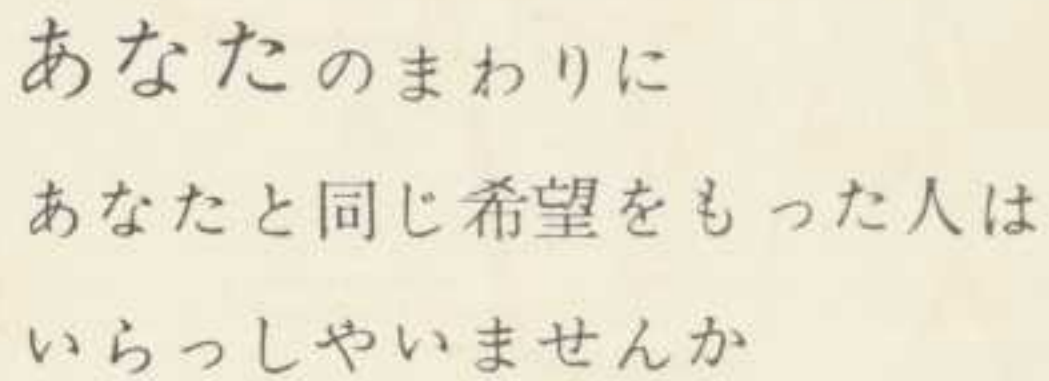 あなたのまわりに
あなたと同じ希望をもった人は
いらっしやいませんか